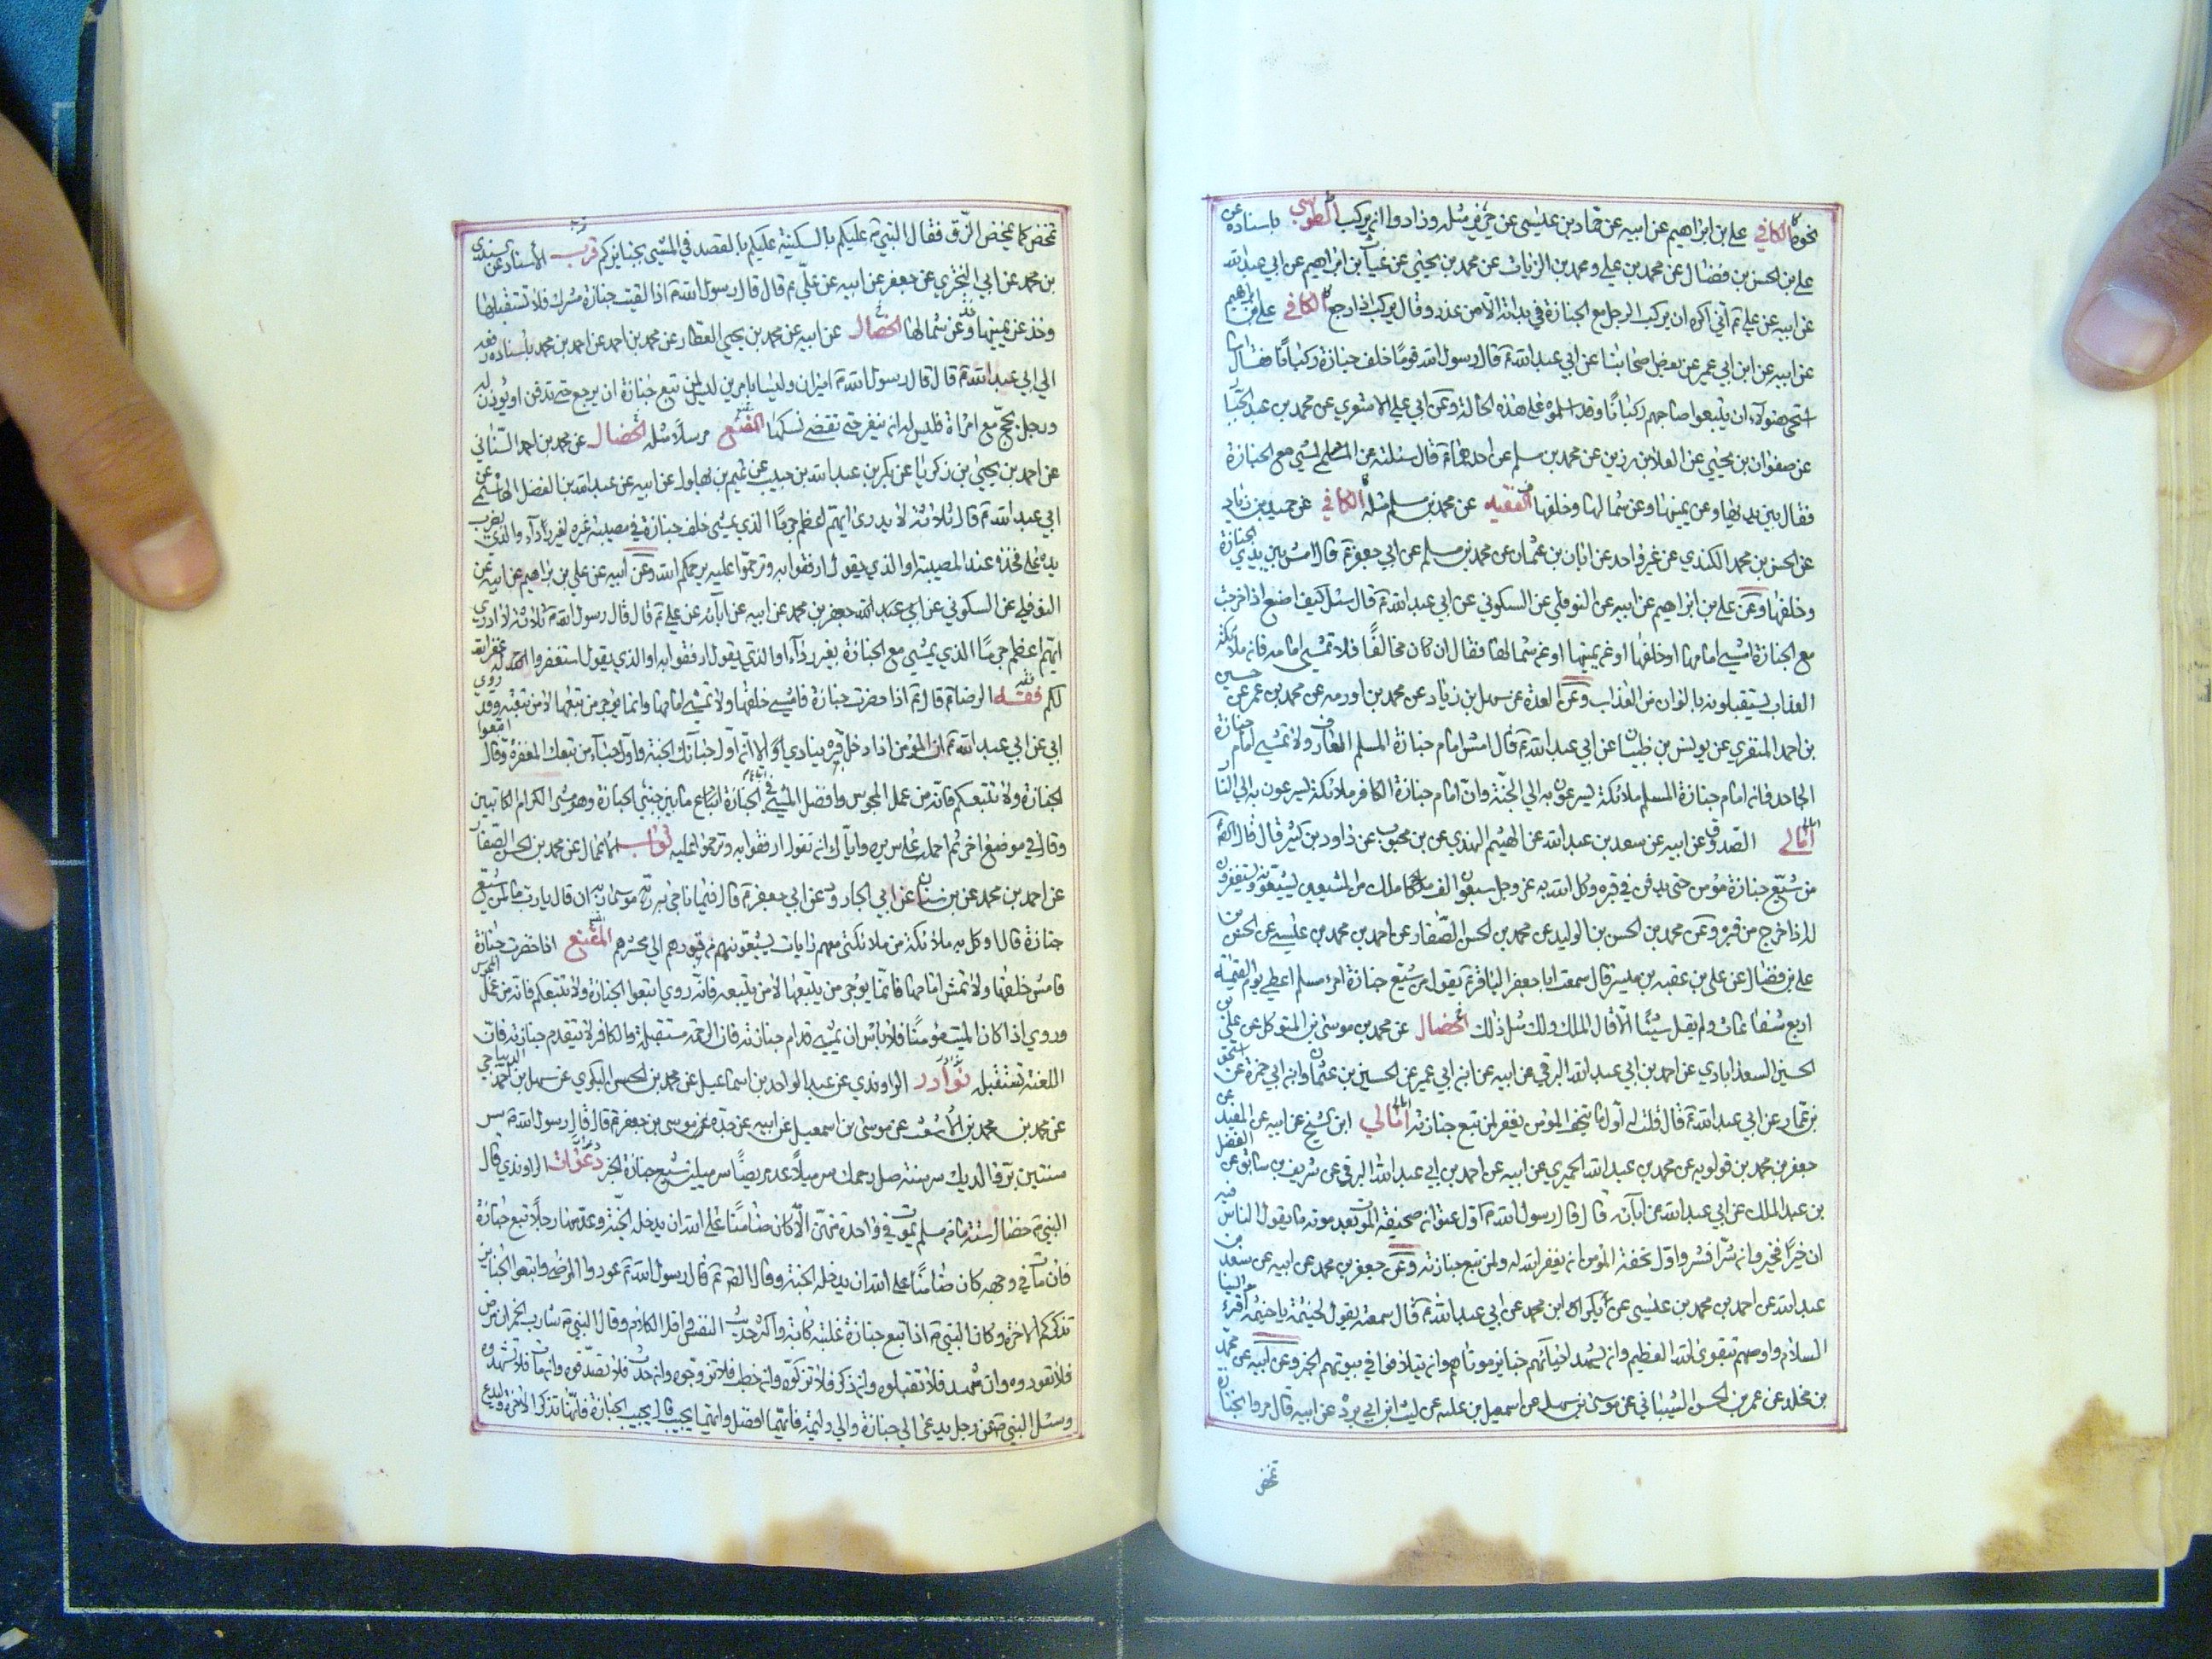 نحوه الكافي علي بن ابراهيم عن ابيه عن حماد بن عيسى عن حريز مثله وزاد وا ان يركب الطوسي باسناده عن
علي بن الحسن بن فضال عن محمد بن علي ومحمد بن الزيات عن محمد بن يحيى عن غياث بن ابراهيم عن ابي عبد الله
عن ابيه عن علي ع انه كره ان يركب الرجل مع الجنازة في بدائه الا من عذر وقال يركب اذا رجع الكافي علي بن ابراهيم
عن ابيه عن ابن ابي عمير عن بعض اصحابنا عن ابي عبد الله ع قال راى رسول الله قوما خلف جنازة ركبانا فقال اما
استحى هؤلاء ان يتبعوا صاحبهم ركبانا وقد اسلموه على هذه الحالة وعن ابي علي الاشعري عن محمد بن عبد الجبار
عن صفوان بن يحيى عن العلا بن رزين عن محمد بن مسلم عن احدهما ع قال سئلته عن المشي مع الجنازة
فقال بين يديها وعن يمينها وعن شمالها وخلفها الفقيه عن محمد بن مسلم مثله الكافي عن حميد بن زياد
عن الحسن بن محمد الكندي عن غير واحد عن ابان بن عثمان عن محمد بن مسلم عن ابي جعفر ع قال امش بين يدي الجنازة
وخلفها وعن علي بن ابراهيم عن ابيه عن النوفلي عن السكوني عن ابي عبد الله ع قال سئل كيف اصنع اذا خرجت
مع الجنازة امشي امامها او خلفها او عن يمينها او عن شمالها فقال ان كان مخالفا فلا تمشي امامه فان ملائكة
العذاب يستقبلونه بالوان من العذاب وعن العدة عن سهل بن زياد عن محمد بن اورمه عن محمد بن عمر عن حسين
بن احمد المنقري عن يونس بن ظبيان عن ابي عبد الله ع قال امش امام جنازة المسلم العارف ولا تمشي امام جنازة
الجاحد فان امام جنازة المسلم ملائكة يسرعون به الى الجنة وان امام جنازة الكافر ملائكة يسرعون به الى النار
امالي الصدوق عن ابيه عن سعد بن عبد الله عن الهيثم النهدي عن بن محبوب عن داود بن كثير قال قال الصادق
من شيع جنازة مؤمن حتى يدفن في قبره وكل الله به عز وجل سبعون الف ملكا ملك من المشيعين يشيعونه ويستغفرون
له اذا خرج من قبره وعن محمد بن الحسن بن الوليد عن محمد بن الحسن الصفار عن احمد بن محمد بن عيسى عن الحسن بن
علي بن فضال عن علي بن عقبه بن ميسر قال سمعت ابا جعفر الباقر ع يقول من شيع جنازة امرء مسلم اعطي يوم القيمة
اربع شفاعات ولم يقل شيئا الا قال الملك ولك مثل ذلك الخصال عن محمد بن موسى بن المتوكل عن علي بن
الحسين السعدابادي عن احمد بن ابي عبد الله البرقي عن ابيه عن ابن ابي عمير عن الحسين بن عثمان وابن ابي حمزة عن اسحق
بن عمار عن ابي عبد الله ع قال قلت له اول ما يتحف المؤمن يغفر لمن تبع جنازته امالي ابن الشيخ عن ابيه عن المفيد عن
جعفر بن محمد بن قولويه عن محمد بن عبد الله الحميري عن ابيه عن احمد بن ابي عبد الله البرقي عن شريف بن سابق عن الفضل
بن عبد الملك عن ابي عبد الله عن ابائه قال قال رسول الله اول عنوان صحيفة المؤمن بعد موته ما يقول الناس فيه
ان خيرا فخير وان شرا فشر واول تحفة المؤمن ان يغفر الله له ولمن تبع جنازته وعن جعفر بن محمد عن ابيه عن سعد بن
عبد الله عن احمد بن محمد بن عيسى عن بكر ابن محمد عن ابي عبد الله ع قال سمعته يقول لخيثمة يا خيثمه اقرء موالينا
السلام واوصهم بتقوى الله العظيم وان يشهد احيائهم جنايز موتاهم وان يتلاقوا في بيوتهم الخبر وعن ابيه عن محمد
بن مخلد عن عمر بن الحسن الشيباني عن موسى بن سهل عن اسمعيل بن علية عن ليث بن ابي بردة عن ابيه قال مروا بجنازة
تمخض
تمخض كما يمخض الزق فقال النبي ص عليكم بالسكينة عليكم بالقصد في المشي بجنايزكم قرب الاسناد عن سندي
بن محمد عن ابي البختري عن جعفر عن ابيه عن علي ع قال قال رسول الله ص اذا لقيت جنازة مشرك فلا تستقبلها
وخذ عن يمينها وعن شمالها الخصال عن ابيه عن محمد بن يحيى العطار عن محمد بن احمد عن احمد بن محمد باسناده رفعه
الى ابي عبد الله ع قال قال رسول الله ص اميران وليسا بامرين ليس لمن تبع جنازة ان يرجع حتى تدفن او يؤذن له
ورجل يحج مع امراة فليس له ان ينفر حتى تقضي نسكها المقنع مرسلا مثله الخصال عن محمد بن احمد السناني
عن احمد بن يحيى بن زكريا عن بكر بن عبد الله بن حبيب عن تميم بن بهلول عن ابيه عن عبد الله بن الفضل الهاشمي عن
ابي عبد الله ع قال ثلاثة لا يدرى ايهم اعظم جرما الذي يمشي خلف جنازة في مصيبة غيره بغير رداء والذي يضرب
يده على فخذه عند المصيبة او الذي يقول ارفقوا به وترحموا عليه يرحمكم الله وعن ابيه عن علي بن ابراهيم عن ابيه عن
النوفلي عن السكوني عن ابي عبد الله جعفر بن محمد عن ابيه عن ابائه عن علي ع قال قال رسول الله ص ثلاثة لا ادري
ايهم اعظم جرما الذي يمشي مع الجنازة بغير رداء او الذي يقول ارفقوا به او الذي يقول استغفروا له غفر الله
لكم فقه الرضا ع قال ع اذا حضرت جنازة فامشي خلفها ولا تمشي امامها وانما يوجر من تبعها لا من تبعته وقد روي
ابي عن ابي عبد الله ع ان المؤمن اذا ادخل قبره ينادي الا ان اول حبائك الجنة واول حباء من تبعك المغفرة وقال اتبعوا
الجنازة ولا تتبعكم فانه من عمل المجوس وافضل المشي في اتباع الجنازة ما بين جنبي الجنازة وهو مشي الكرام الكاتبين
وقال في موضع اخر ثم احمله على سريره واياك ان تقول ارفقوا به وترحموا عليه ثواب الاعمال عن محمد بن الحسن الصفار
عن احمد بن محمد عن بن سنان عن ابي الجارود عن ابي جعفر ع قال فيما ناجى به موسى ربه ان قال يا رب ما لمن شيع
جنازة قال اوكل به ملائكة من ملائكتي معهم رايات يشيعونهم من قبورهم الى محشرهم المقنع اذا حضرت جنازة
فامش خلفها ولا تمش امامها فانما يوجر من يتبعها لا من يتبعه فانه روي اتبعوا الجنازة ولا تتبعكم فانه من عمل المجوس
وروي اذا كان الميت مؤمنا فلا باس ان يمشي قدام جنازته فان الرحمة مستقبلة والكافر لا يتقدم جنازته فان
اللعنة تستقبله نوادر الراوندي عن عبد الواحد بن اسماعيل عن محمد بن الحسن البكري عن سهل بن احمد الديباجي
عن محمد بن محمد بن الاشعث عن موسى بن اسمعيل عن ابيه عن جده عن موسى بن جعفر ع قال قال رسول الله ص سر
سنتين بر والديك سر سنة صل رحمك سر ميلا عد مريضا سر ميلين شيع جنازة الخبر دعوات الراوندي قال
النبي ص خصال ستة ما من مسلم يموت في واحدة منهن الا كان ضامنا على الله ان يدخله الجنة وعد منها رجلا تبع جنازة
فان مات في وجهه كان ضامنا على الله ان يدخله الجنة وقال الصادق ع قال رسول الله ص عودوا المرضى واتبعوا الجنايز
تذكركم الاخرة وكان النبي ص اذا تبع جنازة غلبته كابة واكثر حديث النفس واقل الكلام وقال النبي ص شارب الخمر ان مرض
فلا تعودوه وان شهد فلا تقبلوه وان ذكر فلا تزكوه وان خطب فلا تزوجوه وان حدث فلا تصدقوه وان مات فلا تشهدوه
وسئل النبي ص عن رجل يدعى الى جنازة والى وليمة فايهما افضل وايهما يجيب قال يجيب الجنازة فانها تذكر الاخرة وليدع